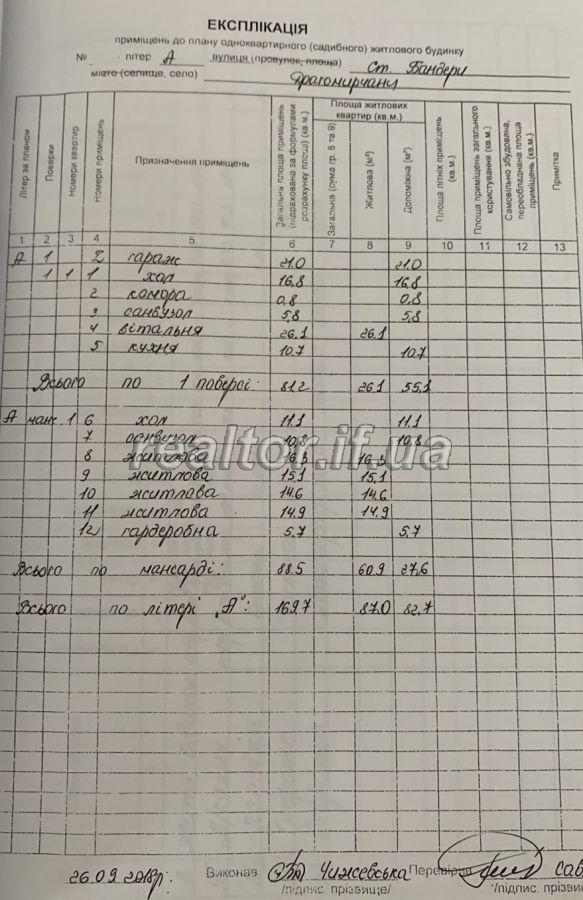 ЕКСПЛІКАЦІЯ
приміщень до плану одноквартирного (садибного) житлового будинку
№ літер А вулиця (провулок, площа) Ст. Бандери
місто (селище, село) Драгомирчани
Літер за планом
Поверхи
Номери квартир
Номери приміщень
Призначення приміщень
Загальна площа приміщень (індрахована за формулами розрахунку площі) (кв.м.)
Площа житлових квартир (кв.м.)
Загальна (сума гр. 8 та 9)
Житлова (м²)
Допоміжна (м²)
Площа літніх приміщень (кв.м.)
Площа приміщень загального користування (кв.м.)
Самовільно збудована, переобладнана площа приміщень (кв.м.)
Примітка
1 2 3 4 5 6 7 8 9 10 11 12 13
А 1 І гараж 21.0 21.0
1 1 1 хол 16,8 16,8
2 комора 0,8 0,8
3 санвузол 5,8 5,8
4 вітальня 26.1 26.1
5 кухня 10.7 10.7
Всього по 1 поверсі: 81.2 26.1 55.1
А манс. 1 6 хол 11.1 11.1
7 санвузол 10,8 10,8
8 житлова 16.3 16.3
9 житлова 15,1 15,1
10 житлова 14.6 14.6
11 житлова 14.9 14.9
12 гардеробна 5.7 5.7
Всього по мансарді: 88.5 60.9 27.6
Всього по літері „А": 169.7 87.0 82.7
realtor.if.ua
26.09.2018р. Виконав Чижевська Перевірив Сав
/підпис, прізвище/ /підпис, прізви